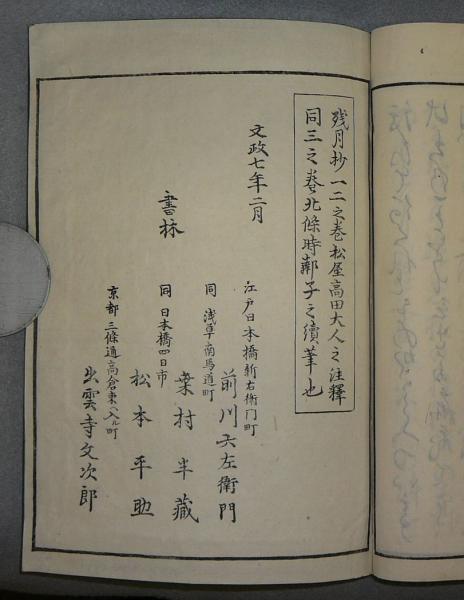 残月抄一二之巻松屋高田大人之注釋
同三之巻北條時鄰子之續筆也
文政七年二月
書林
江戸日本橋新右衛門町
前川六左衛門
同浅草南馬道町
桑村半蔵
同日本橋四日市
松本平助
京都三條通高倉東へ入ル町
出雲寺文次郎